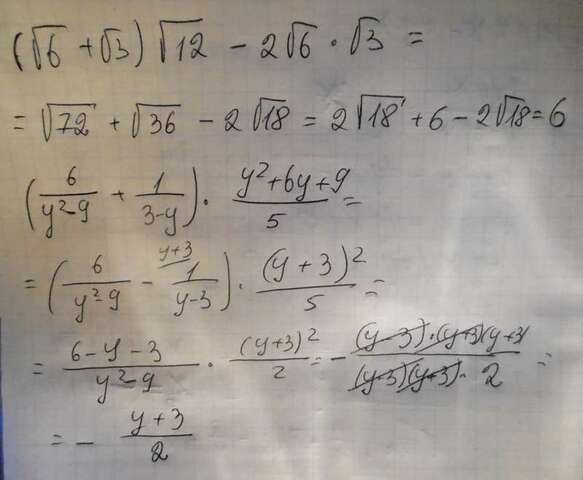 (√6 + √3) √12 − 2√6 · √3 =
= √72 + √36 − 2√18 = 2√18 + 6 − 2√18 = 6
(6/(y²−9) + 1/(3−y)) · (y²+6y+9)/5 =
= (6/(y²−9) − 1/(y−3) y+3) · (y+3)²/5 =
= (6−y−3)/(y²−9) · (y+3)²/2 = − ((y−3)·(y+3)(y+3))/((y−3)(y+3)·2) =
= − (y+3)/2